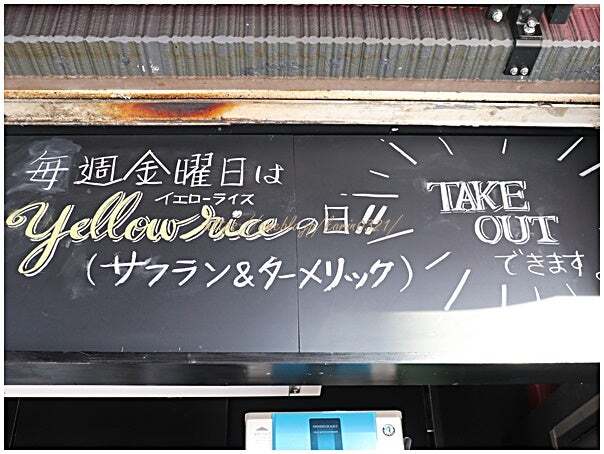 毎週金曜日は
イエローライス
Yellow riceの日!!
(サフラン&ターメリック)
TAKE
OUT
できます。